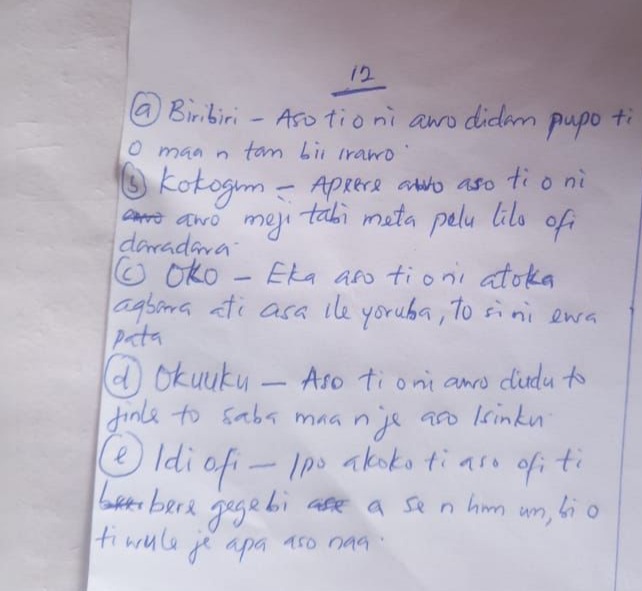 12
(a) Biribiri - Aso ti o ni awo didan pupo ti
o maa n tan bii irawo
(b) Kokogun - Apeere aso ti o ni
awo meji tabi meta pelu lilo ofi
daradara
(c) OKO - Eka aso ti o ni atoka
agbara ati asa ile yoruba, to si ni ewa
pata
(d) Okuuku - Aso ti o ni awo dudu to
jinle to saba maa n je aso Isinku
(e) Idi ofi - Ipo akoko ti aso ofi ti
bere gegebi a se n hun un, bi o
ti wule je apa aso naa.